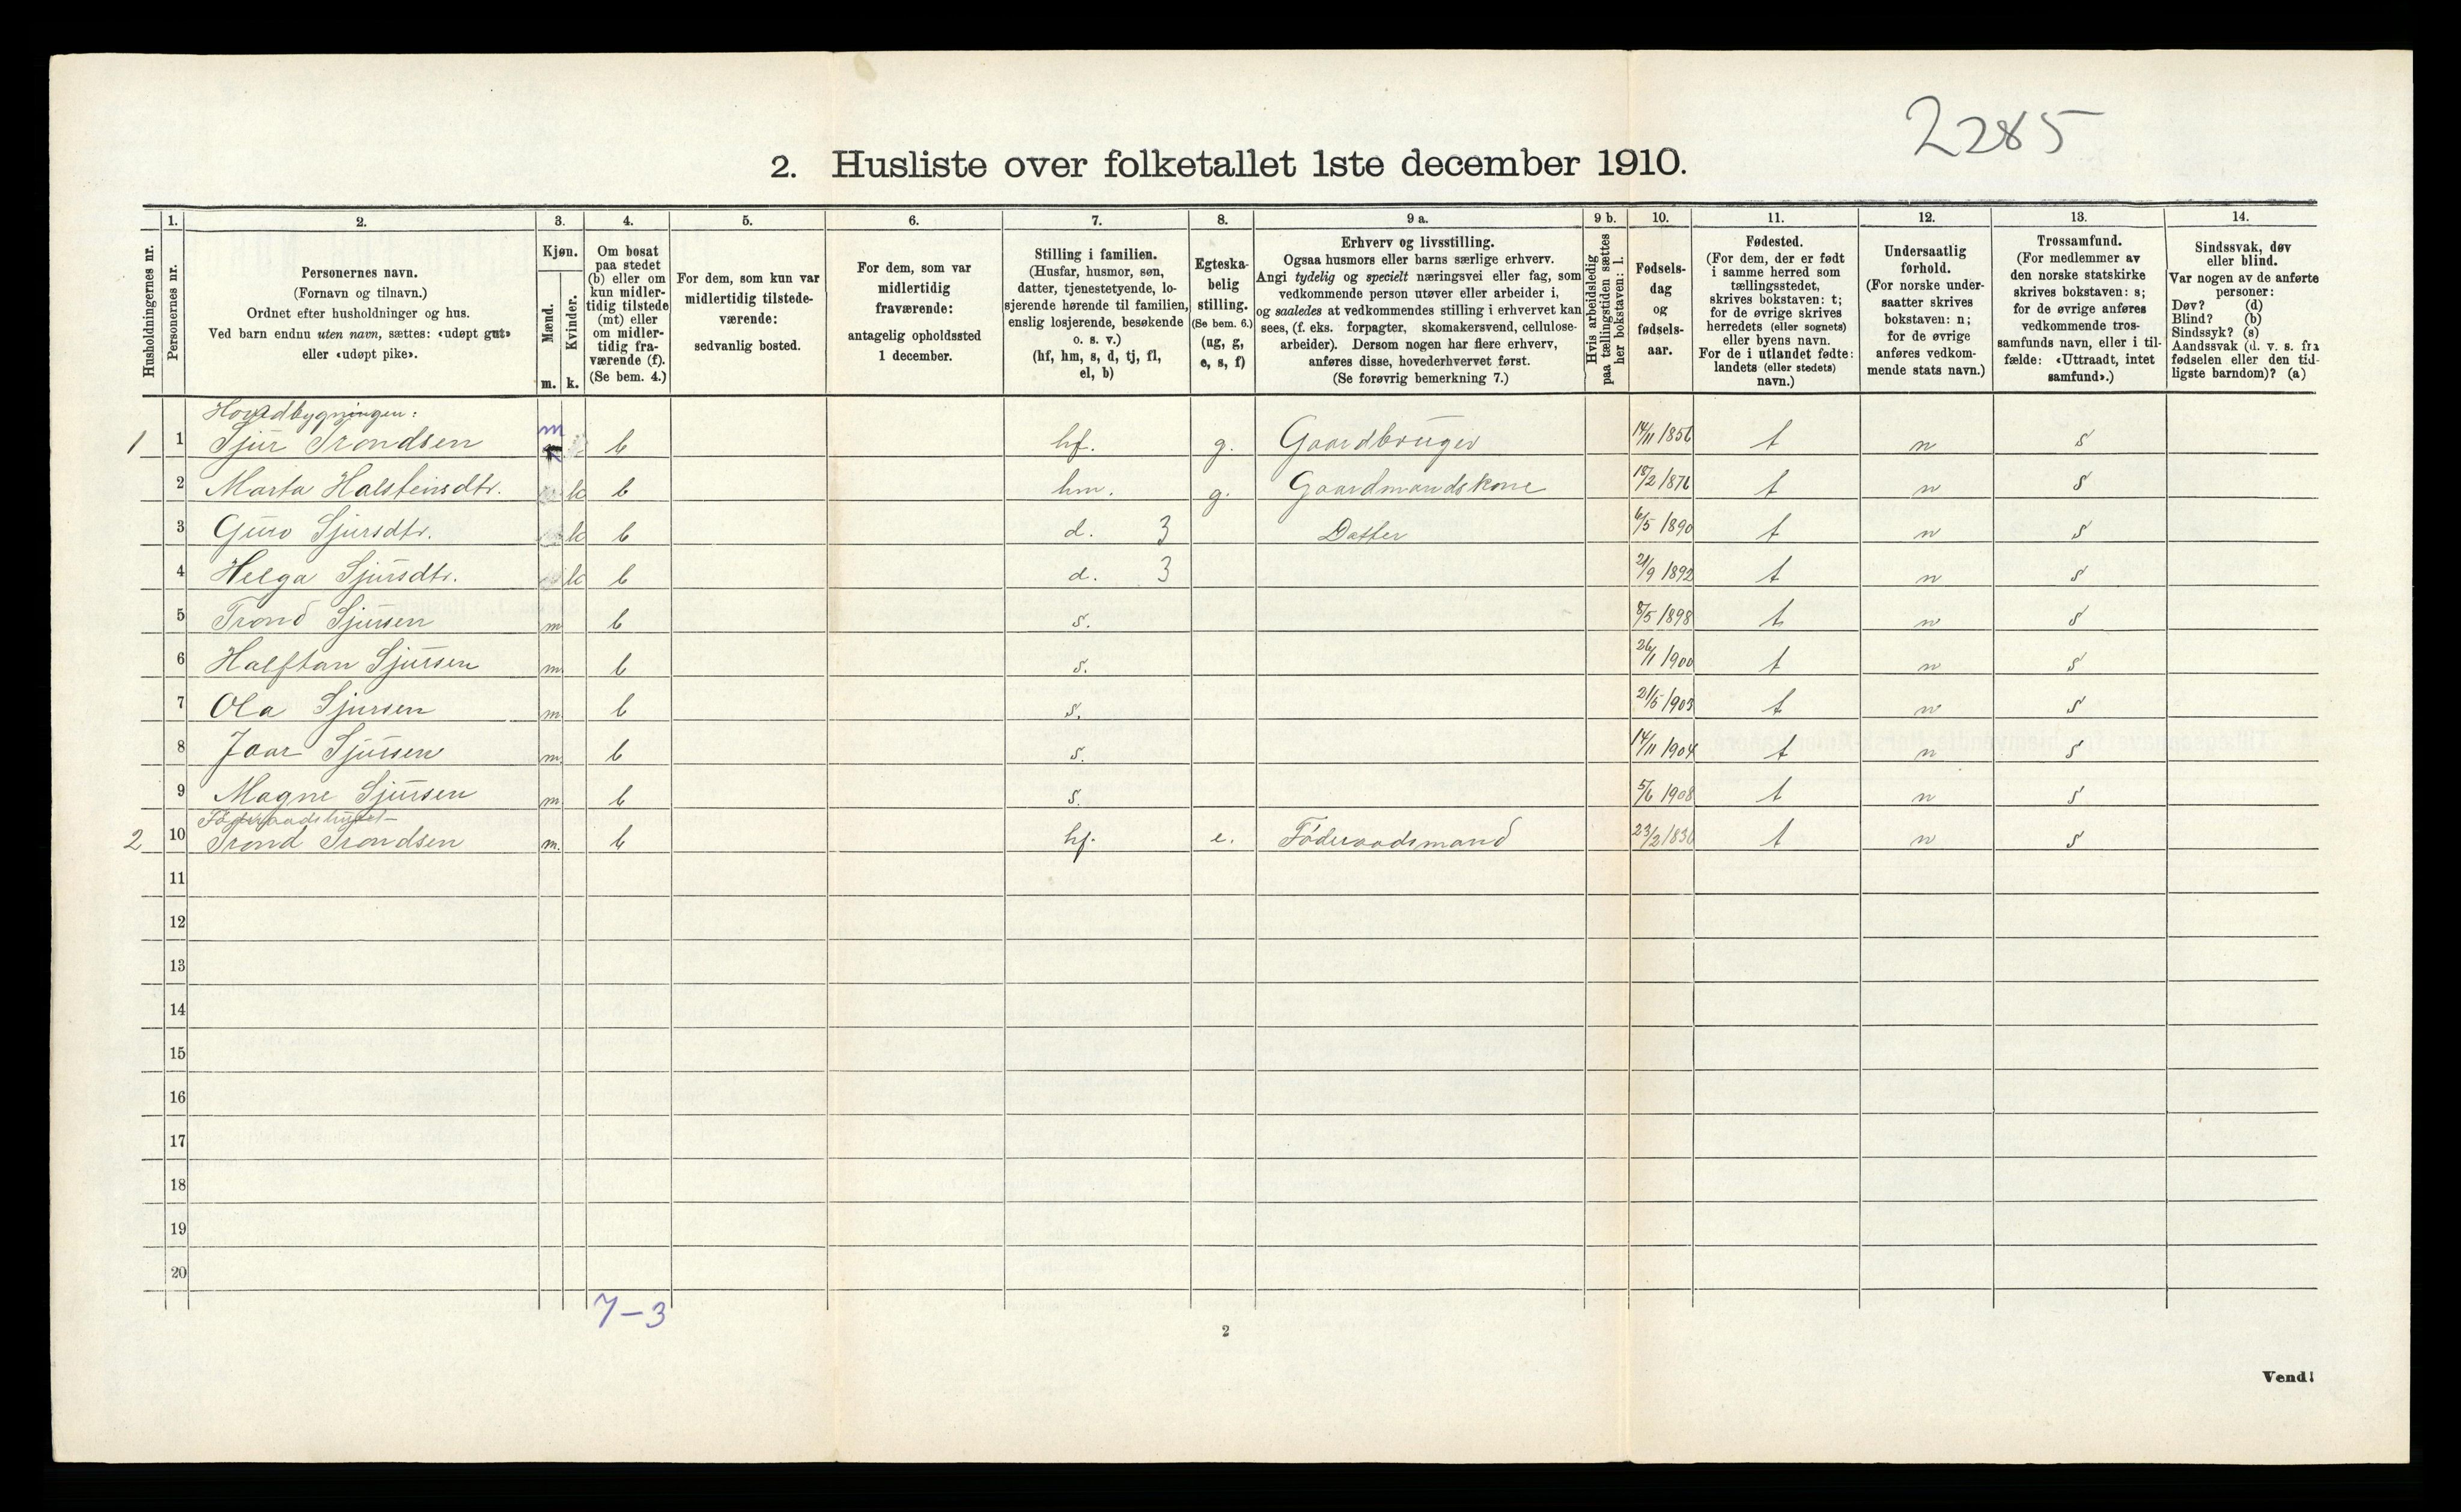 2285
2. Husliste over folketallet 1ste december 1910.
Husholdningernes nr.
1. Personernes nr.
2. Personernes navn.
(Fornavn og tilnavn.)
Ordnet efter husholdninger og hus.
Ved barn endnu uten navn, sættes: «udøpt gut»
eller «udøpt pike».
3. Kjøn.
Mænd. m.
Kvinder. k.
4. Om bosat
paa stedet
(b) eller om
kun midler-
tidig tilstede
(mt) eller
om midler-
tidig fra-
værende (f).
(Se bem. 4.)
5. For dem, som kun var
midlertidig tilstede-
værende:
sedvanlig bosted.
6. For dem, som var
midlertidig
fraværende:
antagelig opholdssted
1 december.
7. Stilling i familien.
(Husfar, husmor, søn,
datter, tjenestetyende, lo-
sjerende hørende til familien,
enslig losjerende, besøkende
o. s. v.)
(hf, hm, s, d, tj, fl,
el, b)
8. Egteska-
belig
stilling.
(Se bem. 6.)
(ug, g,
e, s, f)
9 a. Erhverv og livsstilling.
Ogsaa husmors eller barns særlige erhverv.
Angi tydelig og specielt næringsvei eller fag, som
vedkommende person utøver eller arbeider i,
og saaledes at vedkommendes stilling i erhvervet kan
sees, (f. eks. forpagter, skomakersvend, cellulose-
arbeider). Dersom nogen har flere erhverv,
anføres disse, hovederhvervet først.
(Se forøvrig bemerkning 7.)
9 b. Hvis arbeidsledig
paa tællingstiden sættes
her bokstaven: l.
10. Fødsels-
dag
og
fødsels-
aar.
11. Fødested.
(For dem, der er født
i samme herred som
tællingsstedet,
skrives bokstaven: t;
for de øvrige skrives
herredets (eller sognets)
eller byens navn.
For de i utlandet fødte:
landets (eller stedets)
navn.)
12. Undersaatlig
forhold.
(For norske under-
saatter skrives
bokstaven: n;
for de øvrige
anføres vedkom-
mende stats navn.)
13. Trossamfund.
(For medlemmer av
den norske statskirke
skrives bokstaven: s;
for de øvrige anføres
vedkommende tros-
samfunds navn, eller i til-
fælde: «Uttraadt, intet
samfund».)
14. Sindssvak, døv
eller blind.
Var nogen av de anførte
personer:
Døv? (d)
Blind? (b)
Sindssyk? (s)
Aandssvak (d. v. s. fra
fødselen eller den tid-
ligste barndom)? (a)
Hovedbygningen:
1 1 Sjur Trondsen m b hf. g. Gaardbruger 14/11 1856 t n s
2 Marta Halsteinsdtr. k b hm. g. Gaardmandskone 18/2 1876 t n s
3 Guro Sjursdtr. k b d. 3 Datter 6/5 1890 t n s
4 Helga Sjursdtr. k b d. 3 21/9 1892 t n s
5 Trond Sjursen m b s. 8/5 1898 t n s
6 Halftan Sjursen m b s. 26/11 1900 t n s
7 Ola Sjursen m b s. 21/5 1903 t n s
8 Joar Sjursen m b s. 14/11 1904 t n s
9 Magne Sjursen m b s. 5/6 1908 t n s
Føderaadshuset
2 10 Trond Trondsen m. b hf. e. Føderaadsmand 23/2 1836 t n s
11
12
13
14
15
16
17
18
19
20
7-3
2
Vend!